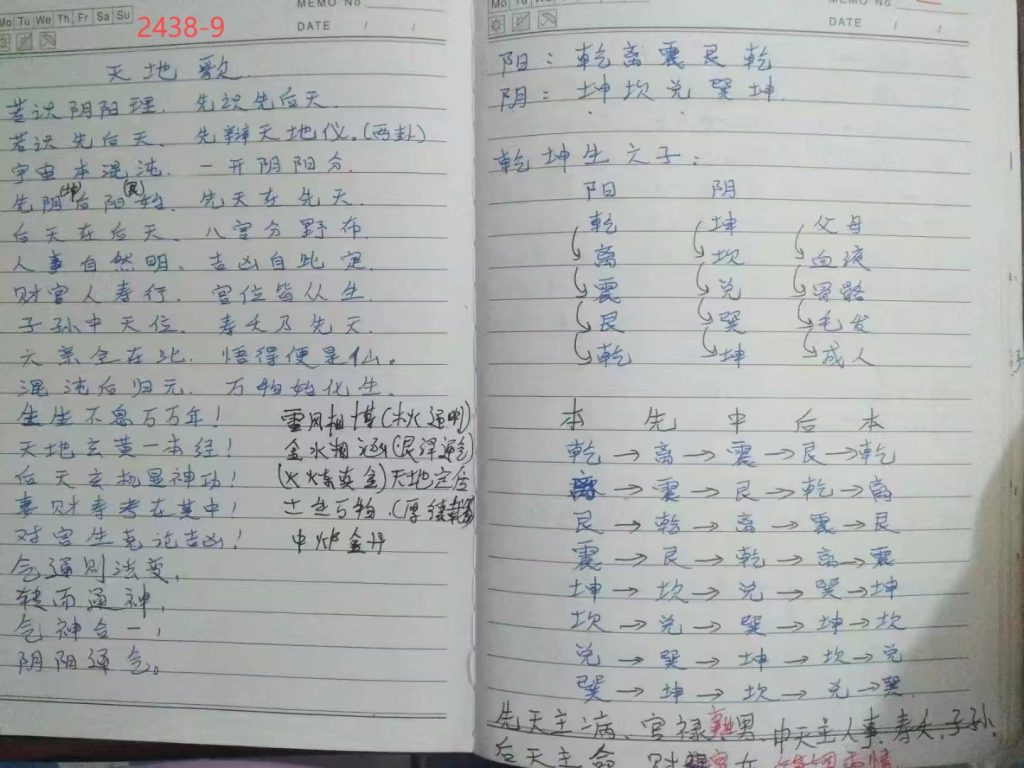 Mo Tu We Th Fr Sa Su
MEMO No
DATE / /
2438-9
天地歌
若识阴阳理、先识先后天、
若识先后天、先辩天地仪。(两卦)
宇宙本混沌、一开阴阳分、
先阴(坤)后阳(艮)始、先天在先天、
后天在后天、八宫分野布、
人事自然明、吉凶自此定、
财官人寿行、宫位皆从生、
子孙中天位、寿夭乃先天、
六亲全在此、悟得便是仙。
混沌后归元、万物始化生、
生生不息万万年! 雷风相博(木火通明)
天地玄黄一本经! 金水相涵(艮泽通气)
后天玄机显神功! (火炼真金)天地定位
妻财寿考在其中! 土生万物(厚德载物)
对宫生克论吉凶! 中炉金丹
气通则法变,
转而通神,
气神合一,
阴阳通气。
Mo Tu
MEMO No
DATE / /
阳:乾离震艮乾
阴:坤坎兑巽坤
乾坤生六子:
阳 阴
乾 坤 父母
离 坎 血液
震 兑 骨骼
艮 巽 毛发
乾 坤 成人
本 先 中 后 本
乾→离→震→艮→乾
离→震→艮→乾→离
艮→乾→离→震→艮
震→艮→乾→离→震
坤→坎→兑→巽→坤
坎→兑→巽→坤→坎
兑→巽→坤→坎→兑
巽→坤→坎→兑→巽
先天主病、官禄 男 中天主人事、寿夭、子孙。
后天主命 财 女